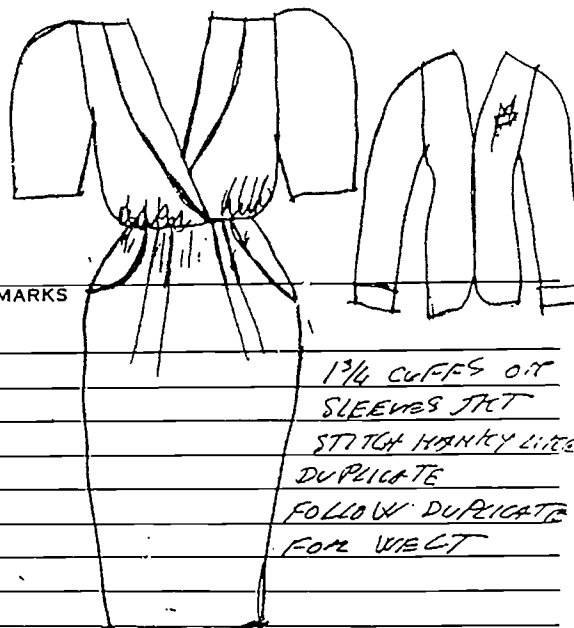 MARKS
1 3/4 CUFFS ON
SLEEVES JKT
STITCH HANKY LIKE
DUPLICATE
FOLLOW DUPLICATE
FOR WELT